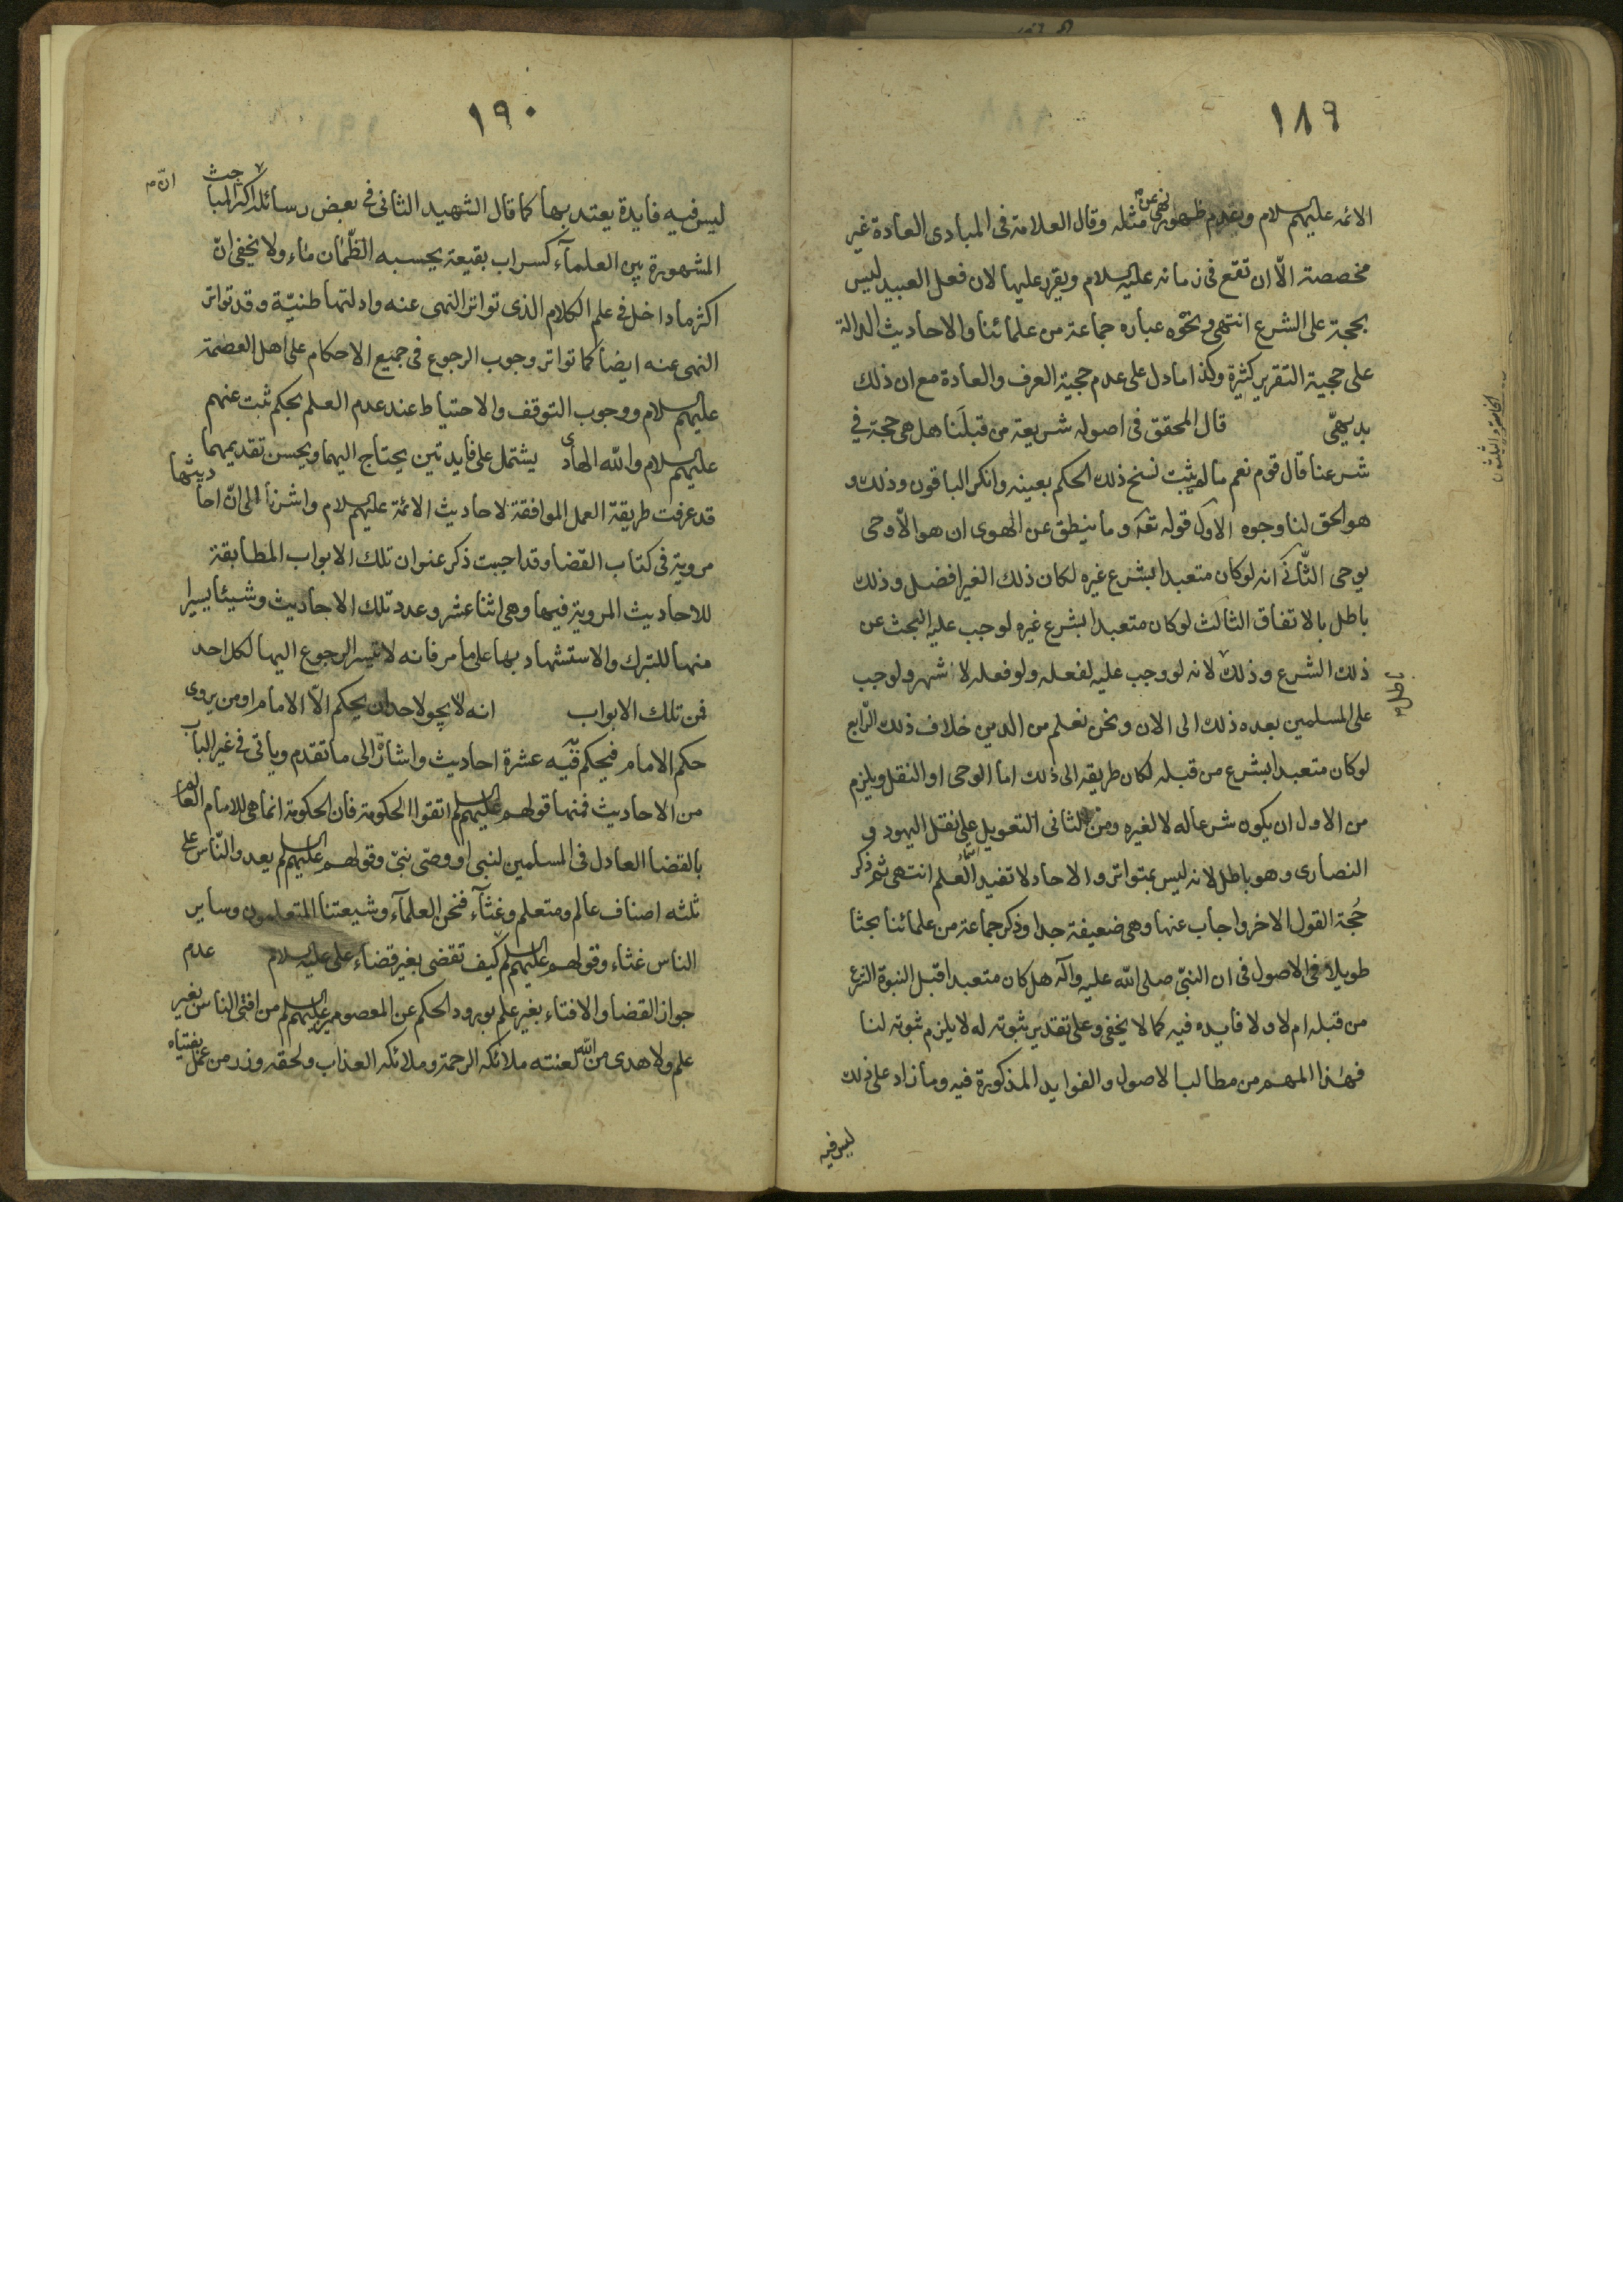 ١٨٩
الائمه عليهم السلام وبعدم ظهور نهى عن مثله وقال العلامة فى المبادى العادة غير
مخصصة الّا ان تقع فى زمانه عليه السلام ويقرر عليها لان فعل العبيد ليس
بحجة على الشرع انتهى ونحوه عباره جماعة من علمائنا والاحاديث الدالة
على حجية التقرير كثيرة وكذا ما دل على عدم حجية العرف والعادة مع ان ذلك
بديهىّ قال المحقق فى اصوله شريعة من قبلنا هل هى حجة فى
الخامسة والثلثون
شرعنا قال قوم نعم ما لم يثبت نسخ ذلك الحكم بعينه وانكر الباقون وذلك و
هو الحق لنا وجوه الاول قوله تعه وما ينطق عن الهوى ان هو الّا وحى
يوحى الثّانى انه لو كان متعبدا بشرع غيره لكان ذلك الغير افضل وذلك
باطل بالاتفاق الثالث لو كان متعبدا بشرع غيره لوجب عليه البحث عن
ذلك الشرع وذلك باطل لانه لو وجب عليه لفعله ولو فعله لاشهر ولوجب
على المسلمين بعده ذلك الى الان ونحن نعلم من الدين خلاف ذلك الرّابع
لو كان متعبدا بشرع من قبله لكان طريقه الى ذلك اما الوحى او النقل ويلزم
من الاول ان يكون شرعا له لا لغيره ومن الثانى التعويل على نقل اليهود و
النصارى وهو باطل لانه ليس بمتواتر والاحاد لا تفيد العلم انتهى ثم ذكر
حُجة القول الاخر واجاب عنها وهى ضعيفة جدا وذكر جماعة من علمائنا بحثا
طويلا فى الاصول فى ان النبىّ صلى الله عليه وآله هل كان متعبدا قبل النبوة بشرع
من قبله ام لا ولا فايده فيه كما لا يخفى وعلى تقدير ثبوته له لا يلزم ثبوته لنا
فهذا المهم من مطالب الاصول والفوايد المذكورة فيه وما زاد على ذلك
ليس فيه
١٩٠
ليس فيه فايدة يعتد بها كما قال الشهيد الثانى فى بعض رسائله انّ اكثر المباحث
المشهورة بين العلمآء كسراب بقيعة يحسبه الظّمٰان مٰاء ولا يخفى انّ
اكثرها داخل فى علم الكلام الذى تواتر النهى عنه وادلتها ظنيّة وقد تواتر
النهى عنه ايضا كما تواتر وجوب الرجوع فى جميع الاحكام على اهل العصمة
عليهم السلام ووجوب التوقف والاحتياط عند عدم العلم بحكم ثبت عنهم
عليهم السلام والله الهادى يشتمل على فايدتين يحتاج اليهما ويحسن تقديمهما
قد عرفت طريقة العمل الموافقة لاحاديث الائمة عليهم السلام واشرنا الى انّ احاديثها
مروية فى كتاب القضا وقد احببت ذكر عنوان تلك الابواب المطابقة
للاحاديث المروية فيها وهى اثنا عشر وعدد تلك الاحاديث وشيئا يسيرا
منها للتبرك والاستشهاد بها على ما مر فانه لا تيسر الرجوع اليها لكل احد
فمن تلك الابواب انه لا يجو لاحد ان يحكم الّا الامام او من يروى
حكم الامام فيحكم به فيه عشرة احاديث واشارة الى ما تقدم وياتى فى غير الباب
من الاحاديث فمنها قولهم عليهم السلم اتقوا الحكومة فان الحكومة انما هى للامام العالم
بالقضا العادل فى المسلمين لنبى او وصّى نبىّ وقولهم عليهم السلم يعدو النّاس على
ثلثه اصناف عالم ومتعلم وغثآء فنحن العلمآء وشيعتنا المتعلمون وساير
الناس غثاء وقولهم عليهم السلم كيف تقضى بغير قضاء على عليه السلام عدم
جواز القضا والافتاء بغير علم بورود الحكم عن المعصومين عليهم السلم من افتى الناس بغير
علم ولا هدى من الله لعنته ملائكه الرحمة وملائكه العذاب ولحقه وزر من عمل بفتياه